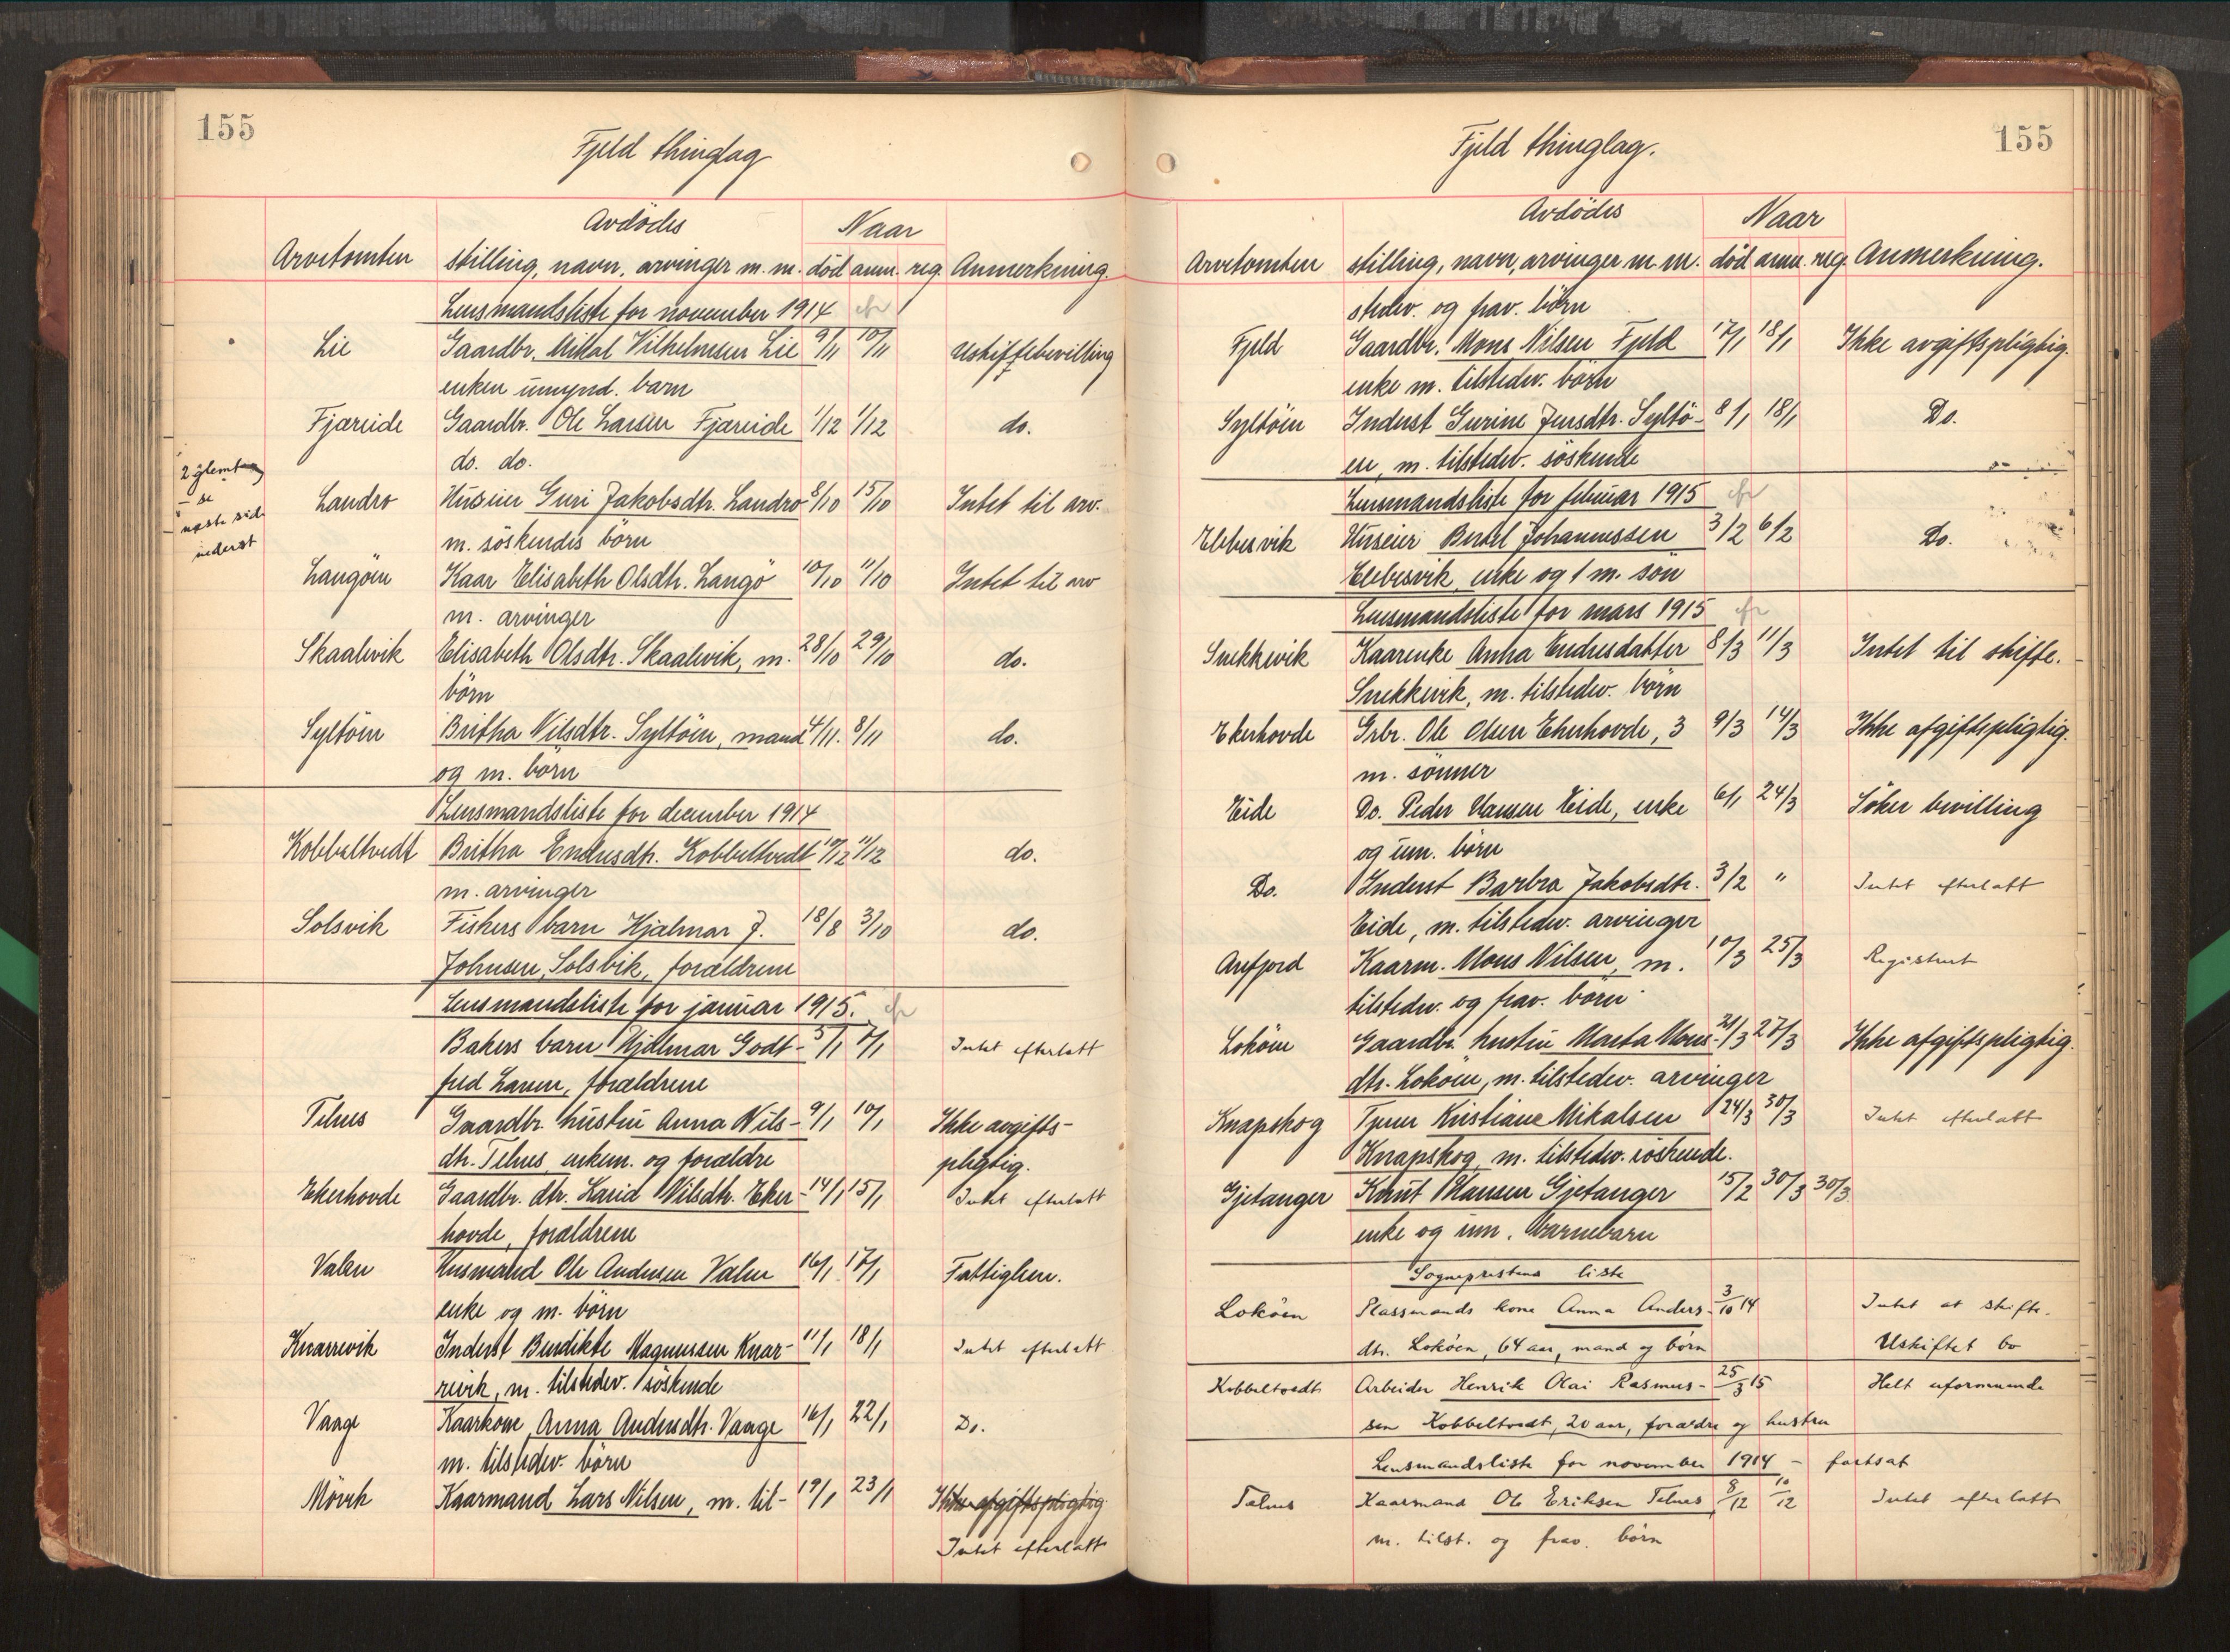 155
Fjeld thinglag
Avdödes Naar
Arvetomten stilling, navn, arvinger m. m. död anm. reg. Anmerkning.
Lensmandsliste for november 1914
Lie Gaardbr. Mikal Vilhelmsen Lie 9/11 10/11 Uskiftebevilling
enken umynd. barn
Fjæreide Gaardbr. Ole Larsen Fjæreide 1/12 1/12 do.
do. do.
2 glemt
se
næste side
nederst
Landro Huseier Guri Jakobsdtr. Landro 8/10 15/10 Intet til arv.
m. söskendes börn
Langöen Kaar Elisabeth Olsdtr. Langö 10/10 11/10 Intet til arv
m. arvinger
Skaalevik Elisabeth Olsdtr. Skaalevik, m. 28/10 29/10 do.
börn
Syltöen Britha Nilsdtr. Syltöen, mand 4/11. 8/11 do.
og m. börn
Lensmandsliste for december 1914
Kobbeltvedt Britha Endresdtr. Kobbeltvedt 10/12 11/12 do.
m. arvinger
Solsvik Fiskers barn Hjalmar J. 18/8 3/10 do.
Johnsen, Solsvik, forældrene
Lensmandsliste for januar 1915.
Bakers barn Hjalmar Godt- 5/1 7/1 Intet efterlatt
fred Larsen, forældrene
Telnes Gaardbr. hustru Anna Nils- 9/1 10/1 Ikke avgifts-
dtr. Telnes, enkem. og forældre pligtig.
Ekerhovde Gaardbr. dtr. Karid Nilsdtr. Eker- 14/1 15/1 Intet efterlatt
hovde, forældrene
Valen Husmand Ole Andersen Valen 16/1 17/1 Fattiglem.
enke og m. börn
Knarrevik Inderst Bendikte Magnussen Knar- 11/1 18/1 Intet efterlatt
revik, m. tilstedev. söskende
Vaage Kaarkone Anna Andersdtr. Vaage 16/1 22/1 Do.
m. tilstedev. börn
Mörek Kaarmand Lars Nilsen, m. til- 19/1 23/1 Ikke afgiftspligtig
Intet efterlatt
155
Fjeld thinglag.
Avdödes Naar
Arvetomten stilling, navn, arvinger m. m. död anm. reg. Anmerkning.
stedev. og frav. börn
Fjeld Gaardbr. Mons Nilsen Fjeld 17/1 18/1 Ikke avgiftspligtig.
enke m. tilstedev. börn
Syltöen Inderst Gurine Jensdtr. Syltö- 8/1 18/1 Do.
en, m. tilstedev. söskende
Lensmandsliste for februar 1915
Ebbesvik Huseier Bertel Johannessen 3/2 6/2 Do.
Ebbesvik, enke og 1 m. sön
Lensmandsliste for mars 1915
Snekkevik Kaarenke Anna Endresdatter 8/3 11/3 Intet til skifte.
Snekkevik, m. tilstedev. börn
Ekerhovde Grbr. Ole Olsen Ekerhovde, 3 9/3 14/3 Ikke afgiftspligtig.
m. sönner
Eide Do. Peder Hansen Eide, enke 6/1 24/3 Söker bevilling
og um. börn
Do. Inderst Barbra Jakobsdtr. 3/2 " Intet efterlatt
Eide, m. tilstedev. arvinger
Arefjord Kaarm. Mons Nilsen, m. 10/3 25/3 Registrert
tilstedev. og frav. börn
Loköen Gaardbr. hustru Marta Mons- 21/3 27/3 Ikke afgiftspligtig.
dtr. Loköen, m. tilstedev. arvinger
Knapskog Tjener Kristiane Mikalsen 24/3 30/3 Intet efterlatt
Knapskog, m. tilstedev. söskende.
Gjetanger Knut Hansen Gjetanger 15/2 30/3 30/3
enke og um. barnebarn
Sogneprestens liste
Loköen Plassmands kone Anna Anders- 3/10 14 Intet at skifte.
dtr. Loköen, 64 aar, mand og börn Uskiftet bo
Kobbeltvedt Arbeider Henrik Olai Rasmus- 25/3 15 Helt uformuende
sen Kobbeltvedt, 20 aar, forældre og hustru
Lensmandsliste for november 1914 – fortsat
Telnes Kaarmand Ole Eriksen Telnes 8/12 10/12 Intet efterlatt
m. tilst. og frav. börn